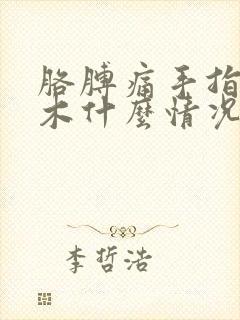 胳膊痛手指
木什麼情况
李哲浩